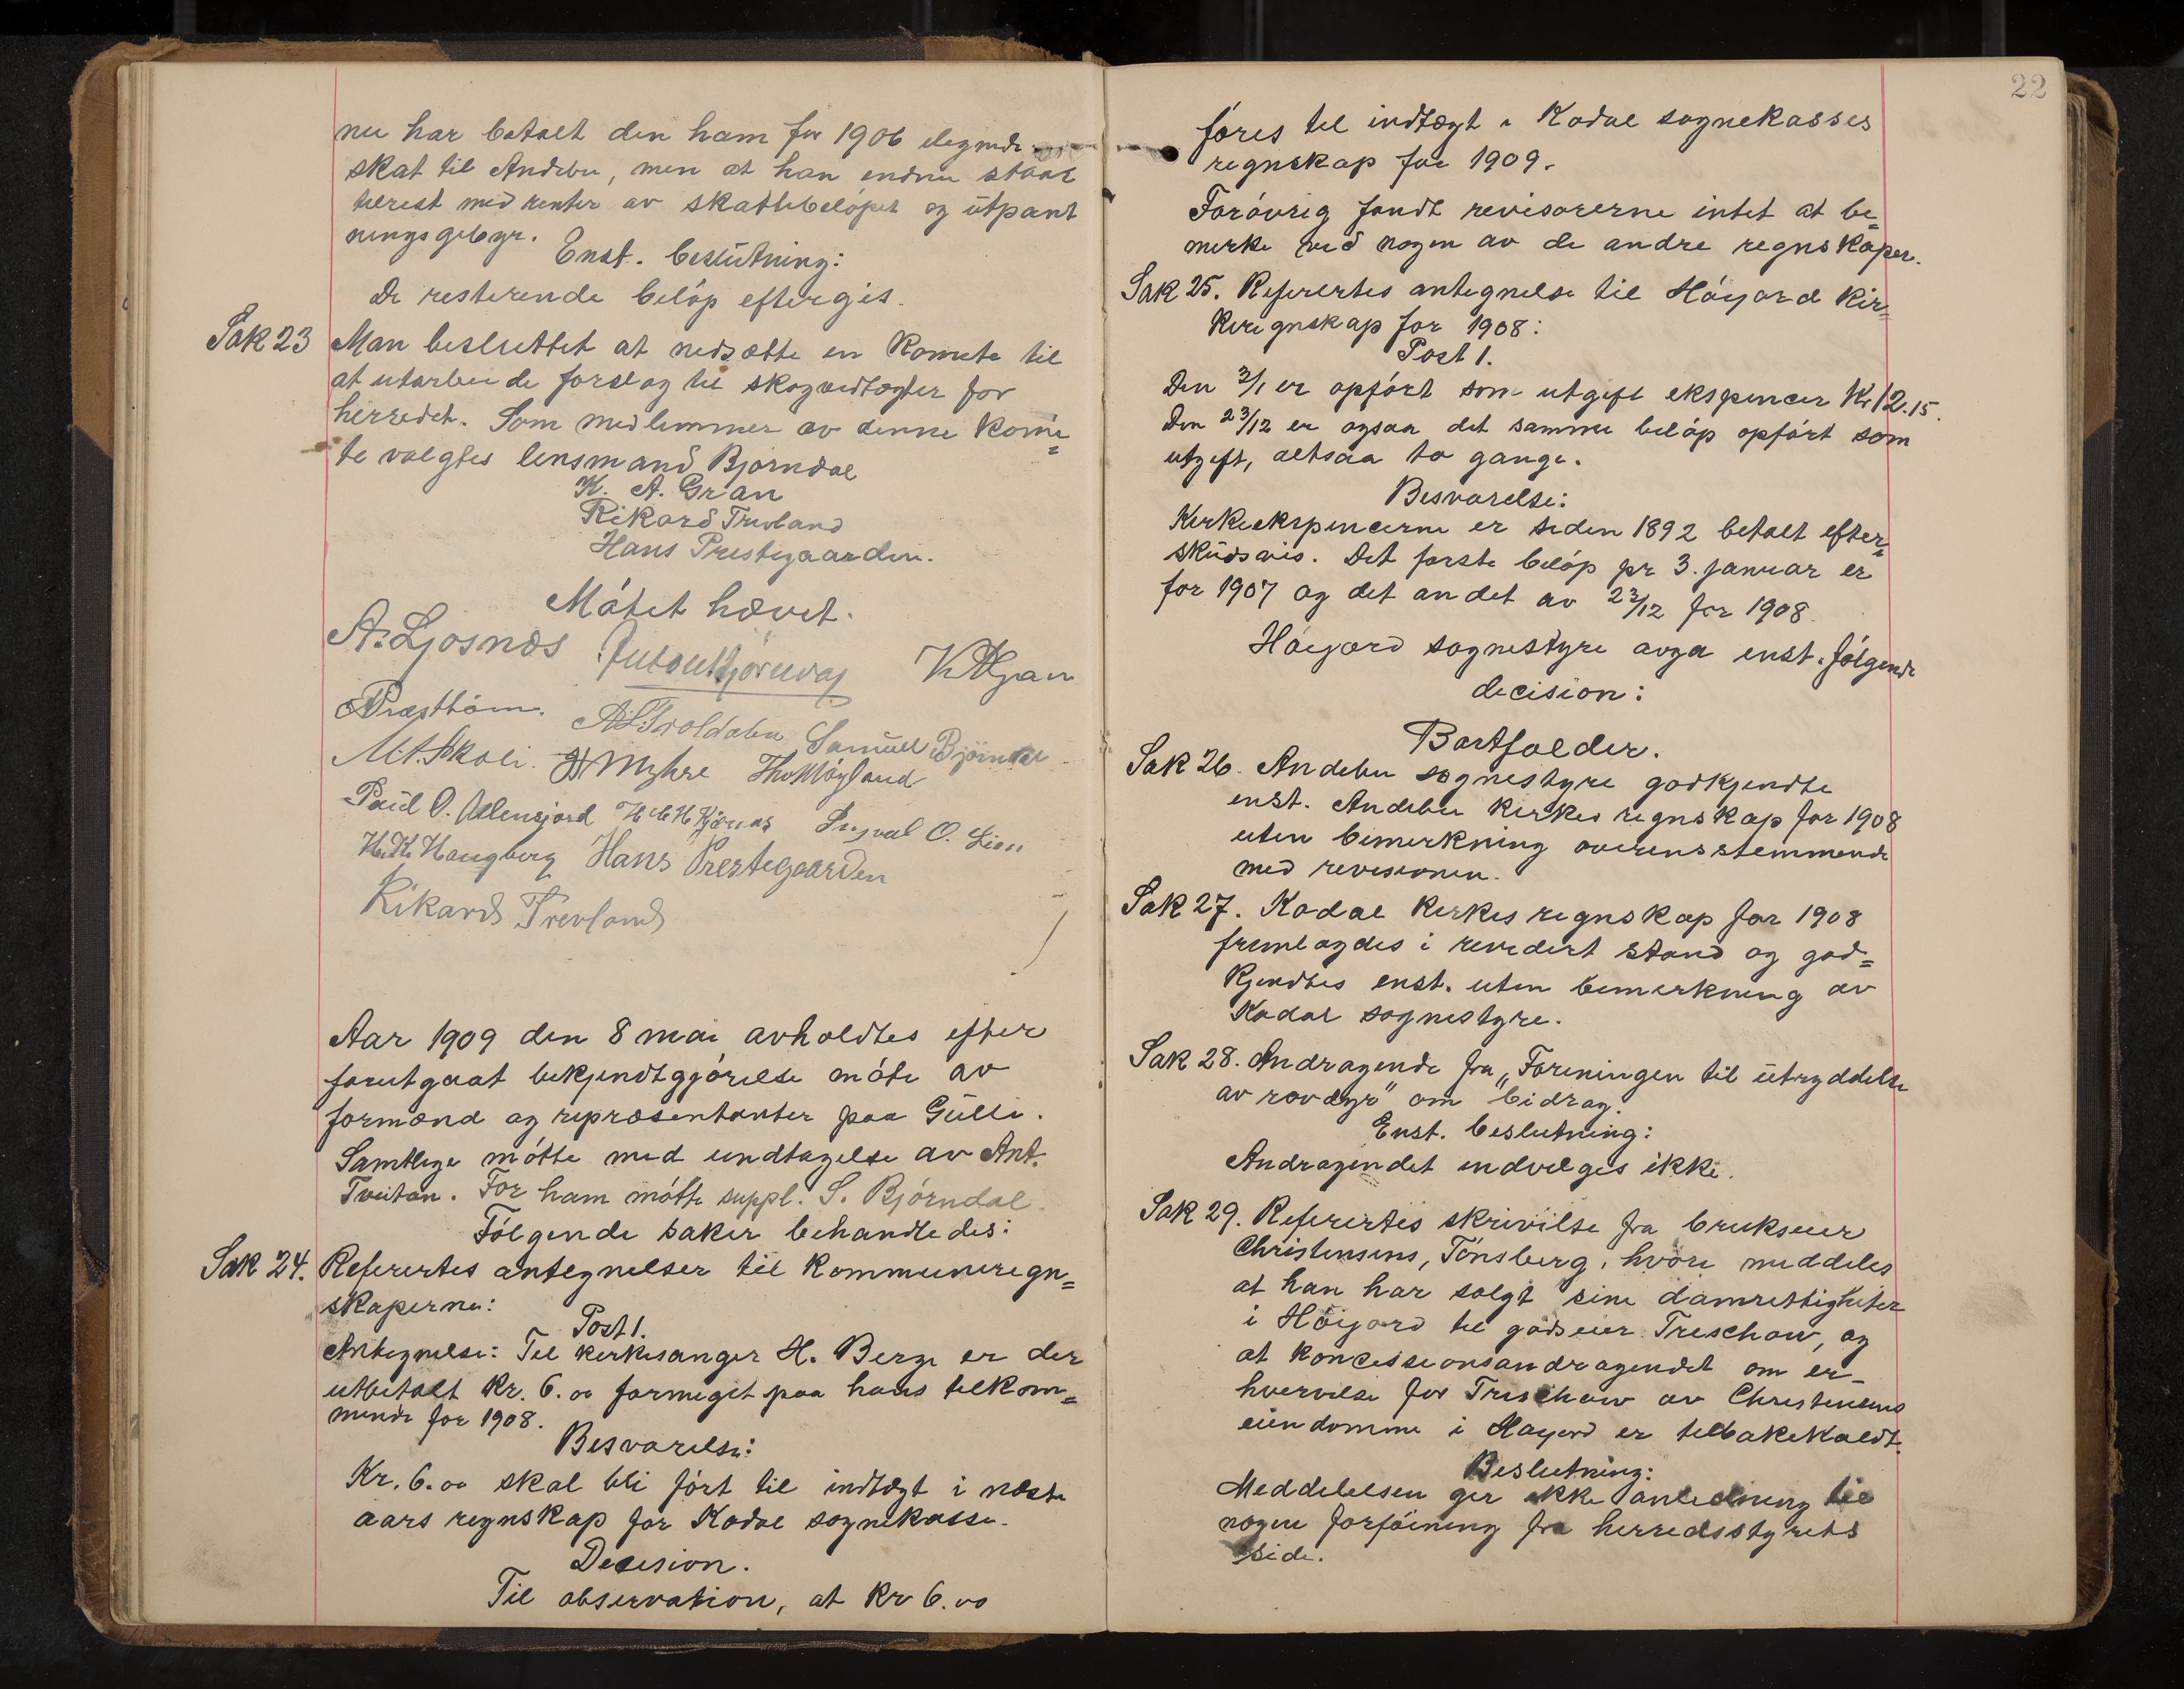 nu har betalt den ham for 1906 ilegnede
skat til Andebu, men at han endnu staar
tilrest med renter av skattebeløpet og utpant
ningsgebyr.
Enst. beslutning:
De resterende beløp eftergis.
Sak 23 Man besluttet at nedsætte en komite til
at utarbeide forslag til skogvedtægter for
herredet. Som medlemmer av denne komi=
te valgtes lensmand Bjørndal
K. A. Gran
Rikard Trevland
Hans Prestegaarden.
Møtet hævet.
A. Ljosnæs Anton Hjørnerøj K A Gran
Præsthom. A. L. Troldalen Samuel Bjørndal
M. A. Skoli. H Myhre Th. Møyland
Paul O. Allensjord H Kjærnes Ingval O. Lien
H. K. Haugberg Hans Prestegaarden
Rikard Trevland
Aar 1909 den 8 mai avholdtes efter
forutgaat bekjendtgjørelse møte av
formænd og repræsentanter paa Gulli.
Samtlige møtte med undtagelse av Ant.
Tveitan. For ham møtte suppl. S. Bjørndal.
Følgende saker behandledes:
Sak 24. Refertes antegnelser til kommuneregn=
skaperne:
Post 1.
Antegnelse: Til kirkesanger H. Berge er der
utbetalt kr. 6.00 formeget paa hans tilkom=
mende for 1908.
Besvarelse:
Kr. 6.00 skal bli ført til indtægt i næste
aars regnskap for Kodal sognekasse.
Decision.
Til observation, at kr 6.00
22
føres til indtægt i Kodal sognekasses
regnskap for 1909.
Forøvrig fandt revisorerne intet at be=
merke ved nogen av de andre regnskaper.
Sak 25. Refertes antegnelse til Høyjord kir=
keregnskap for 1908:
Post 1.
Den 3/1 er opført som utgift ekspencer Kr 12.15.
Den 23/12 er ogsaa det samme beløp opført som
utgift, altsaa to gange.
Besvarelse:
Kirkeekspencerne er siden 1892 betalt efter=
skudsvis. Det første beløp pr 3. januar er
for 1907 og det andet av 23/12 for 1908.
Høijord sognestyre avga enst. følgende
decision:
Bortfalder.
Sak 26. Andebu sognestyre godkjendte
enst. Andebu kirkes regnskap for 1908
uten bemerkning overensstemmende
med revisionen.
Sak 27. Kodal kirkes regnskap for 1908
fremlagdes i revidert stand og god=
kjendtes enst. uten bemerkning av
Kodal sognestyre.
Sak 28. Andragende fra "Foreningen til utryddelse
av rovdyr" om bidrag.
Enst. beslutning:
Andragendet indvilges ikke.
Sak 29. Refertes skrivelse fra brukseier
Christensens, Tønsberg, hvori meddeles
at han har solgt sine damrettigheter
i Høijord til godseier Treschow, og
at koncessionsandragendet om er-
hvervelse for Treschow av Christensens
eiendomme i Høyjord er tilbakekaldt.
Beslutning:
Meddelelsen gir ikke anledning til
nogen forføining fra herredsstyrets
side.